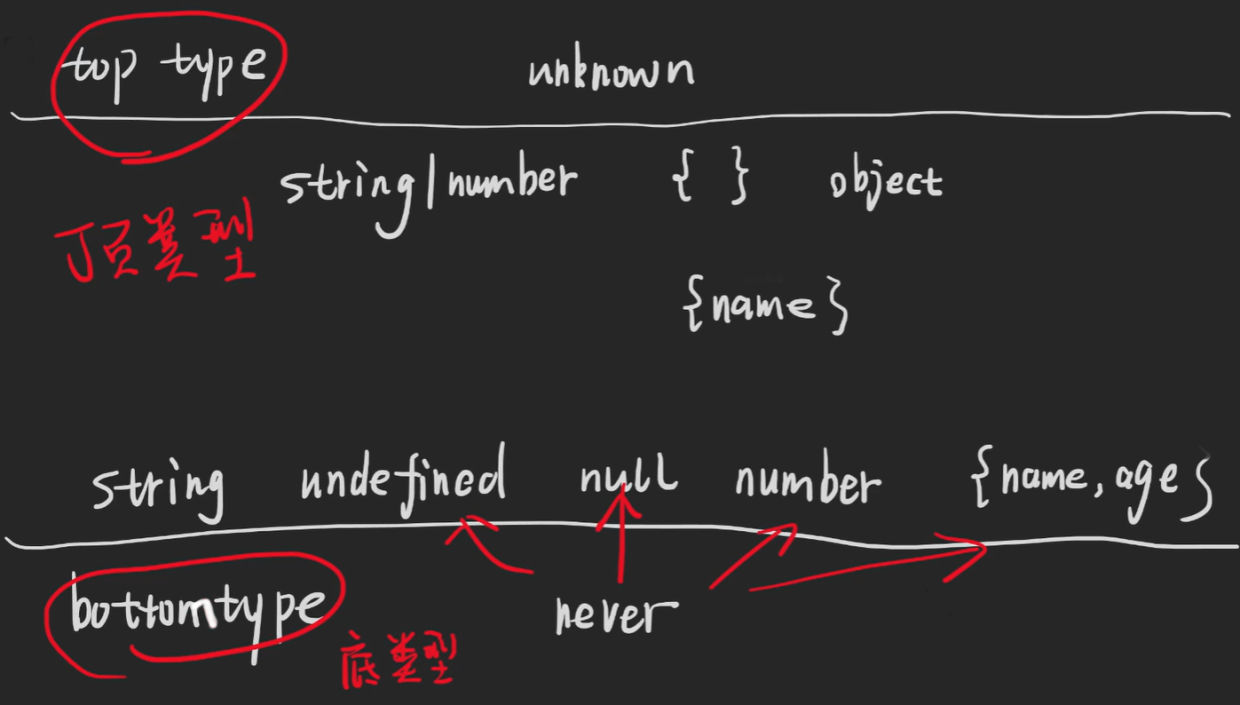 top type unknown
string|number { } object
顶类型
{name}
string undefined null number {name, age}
bottomtype never
底类型